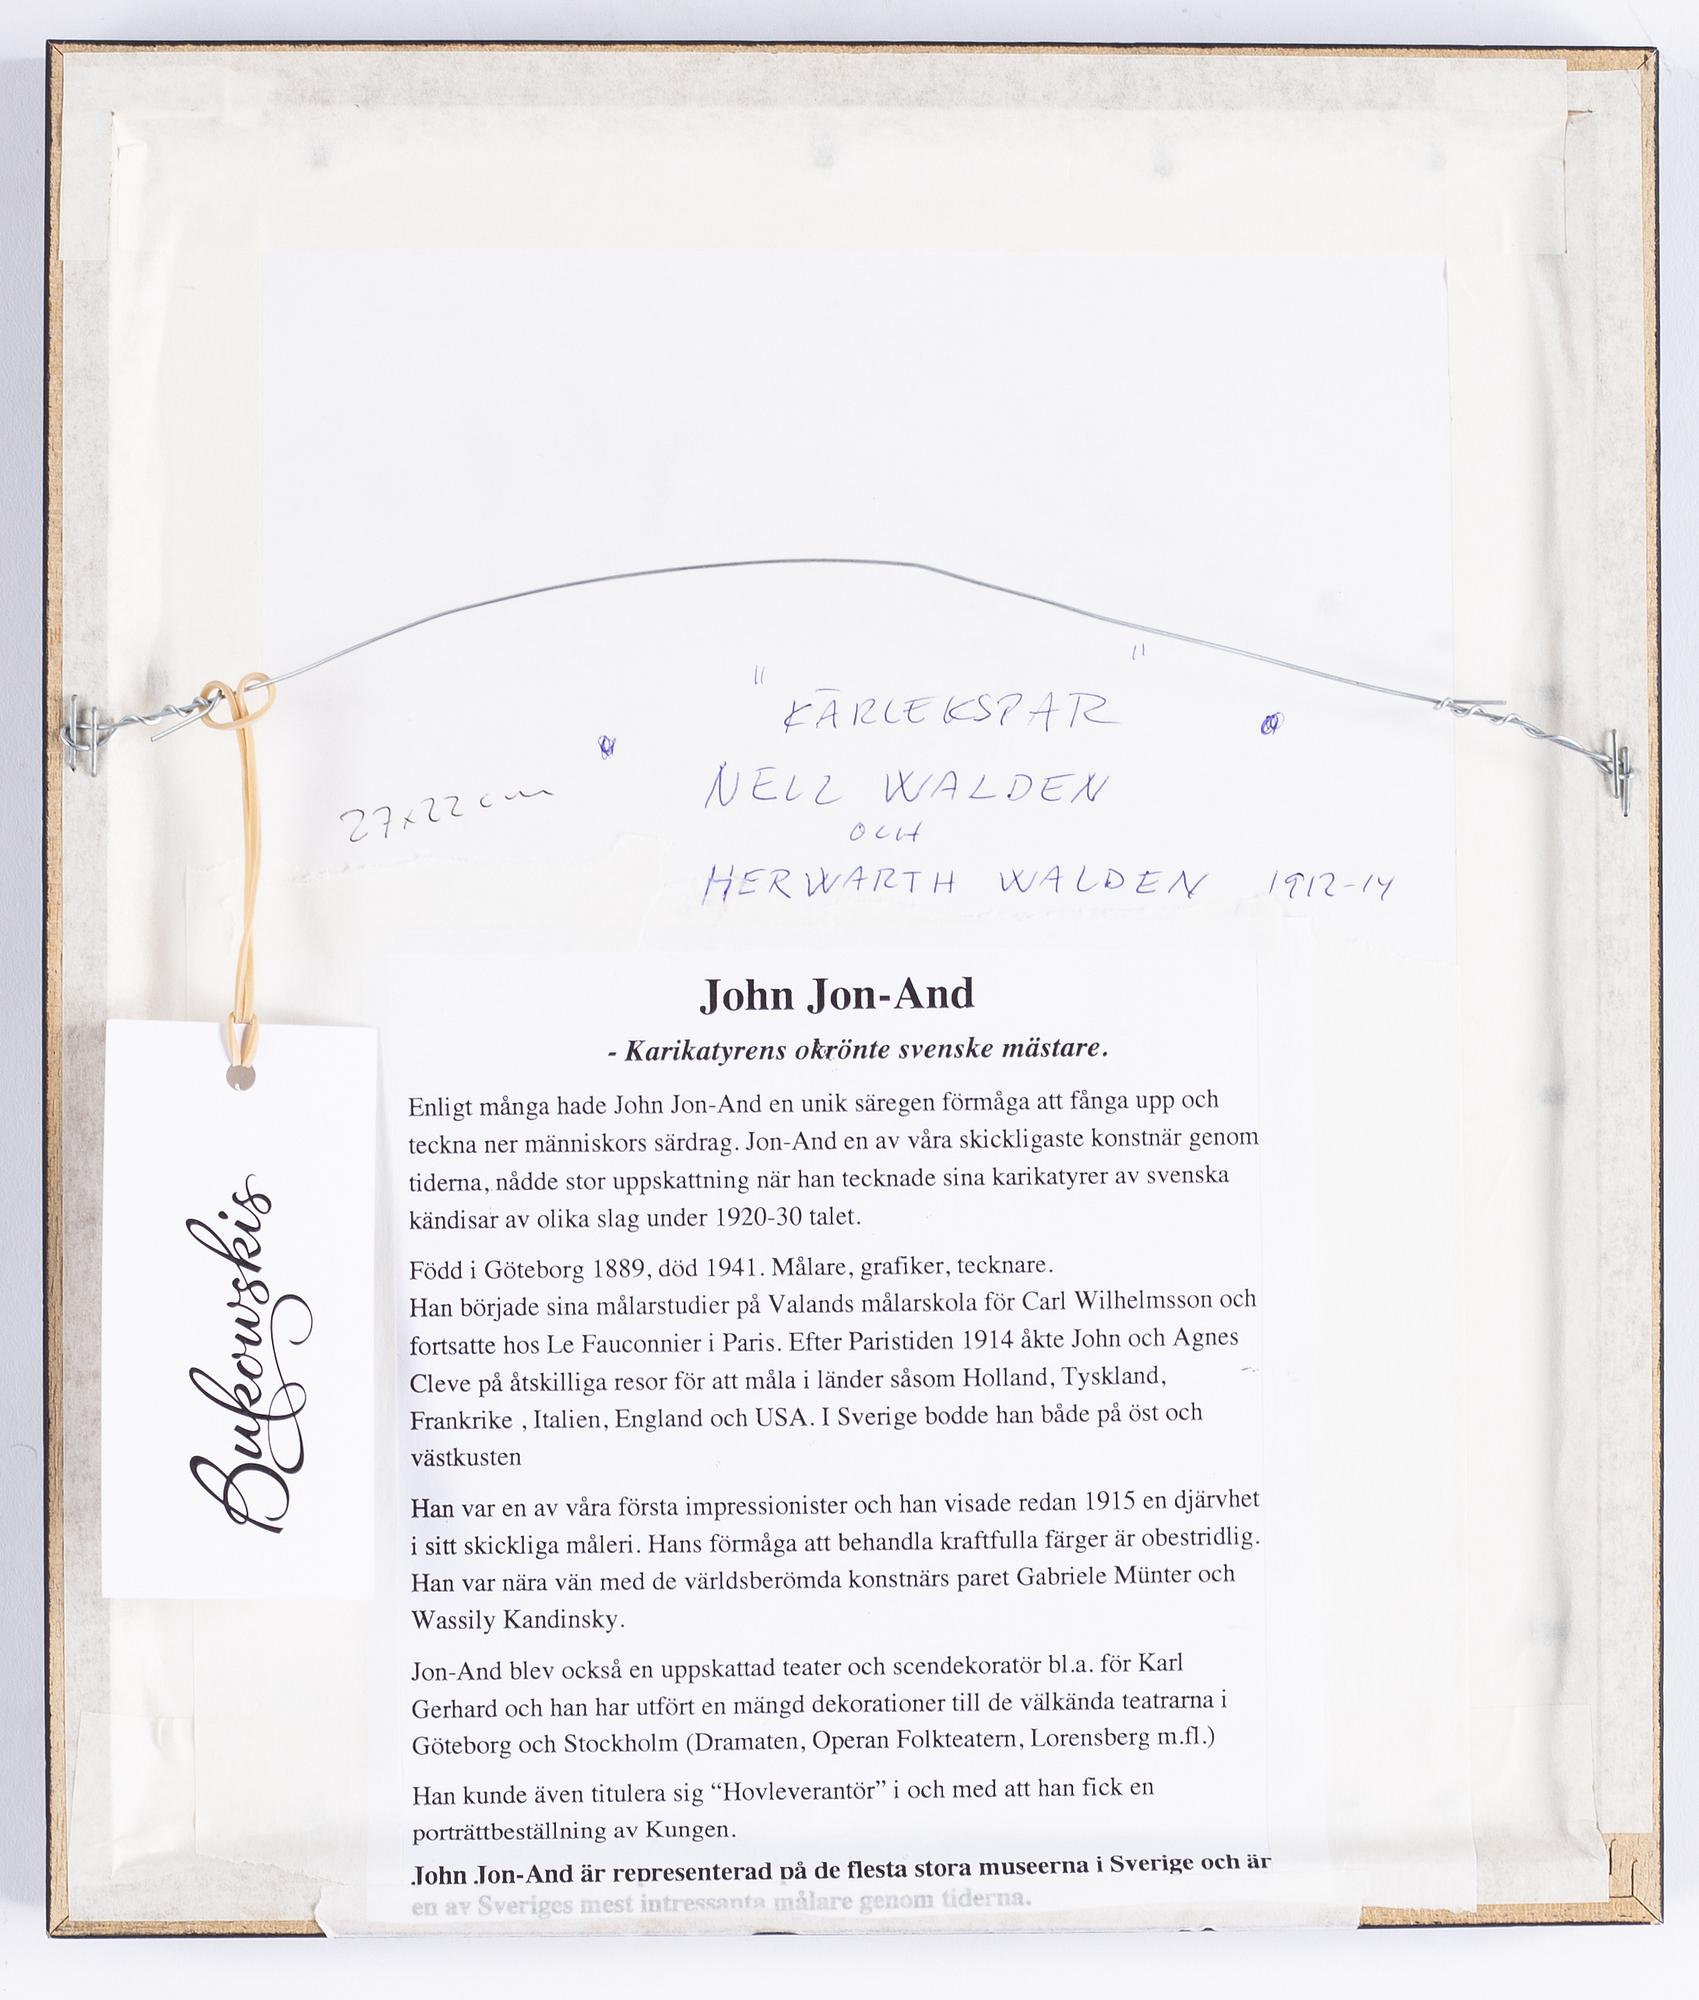 "KÄRLEKSPAR"
27x22 cm
NELL WALDEN
OCH
HERWARTH WALDEN 1912-14
John Jon-And
- Karikatyrens okrönte svenske mästare.
Enligt många hade John Jon-And en unik säregen förmåga att fånga upp och
teckna ner människors särdrag. Jon-And en av våra skickligaste konstnär genom
tiderna, nådde stor uppskattning när han tecknade sina karikatyrer av svenska
kändisar av olika slag under 1920-30 talet.
Född i Göteborg 1889, död 1941. Målare, grafiker, tecknare.
Han började sina målarstudier på Valands målarskola för Carl Wilhelmsson och
fortsatte hos Le Fauconnier i Paris. Efter Paristiden 1914 åkte John och Agnes
Cleve på åtskilliga resor för att måla i länder såsom Holland, Tyskland,
Frankrike , Italien, England och USA. I Sverige bodde han både på öst och
västkusten
Han var en av våra första impressionister och han visade redan 1915 en djärvhet
i sitt skickliga måleri. Hans förmåga att behandla kraftfulla färger är obestridlig.
Han var nära vän med de världsberömda konstnärs paret Gabriele Münter och
Wassily Kandinsky.
Jon-And blev också en uppskattad teater och scendekoratör bl.a. för Karl
Gerhard och han har utfört en mängd dekorationer till de välkända teatrarna i
Göteborg och Stockholm (Dramaten, Operan Folkteatern, Lorensberg m.fl.)
Han kunde även titulera sig “Hovleverantör” i och med att han fick en
porträttbeställning av Kungen.
John Jon-And är representerad på de flesta stora museerna i Sverige och är
en av Sveriges mest intressanta målare genom tiderna.
Bukowskis